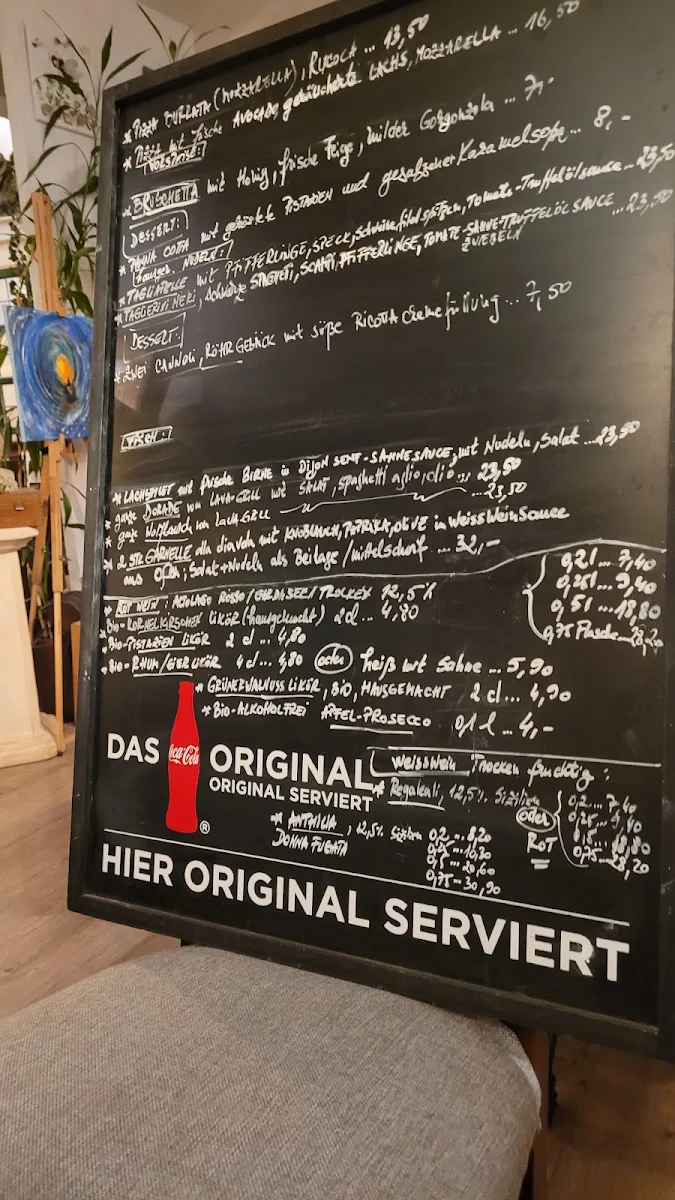 * Pizza BURRATA (MOZZARELLA), RUCOLA ... 13,50
* Pizza mit frische AVOCADO, geräucherte LACHS, MOZZARELLA ... 16,50
VORSPEISE:
* BRUSCHETTA mit Honig, frische Feige, milder Gorgonzola ... 7,-
DESSERT:
* PANNA COTTA mit gehackte PISTAZIEN und gesalzener Karamelsoße ... 8,-
NUDELN:
* TAGLIATELLE mit PFIFFERLINGE, SPECK, Schweinefiletspitzen, Tomate-Trüffelölsauce ... 23,50
* TAGLIERINI NERI, schwarze SPAGHETTI, SCAMPI, PFIFFERLINGE, TOMATE-SAHNE-TRUFFELÖLSAUCE ... 23,50
ZWIEBELN
DESSERT:
* ZWEI CANNOLI, RÖHRGEBÄCK mit süße RICOTTA Cremefüllung ... 7,50
FISCH:
* LACHSFILET mit frische BIRNE in DIJON SENF-SAHNESAUCE, mit Nudeln, Salat ... 23,50
* ganze DORADE von LAVA-GRILL mit SALAT, spaghetti aglio, olio ... 23,50
* ganze Wolfsbarsch von LAVA-GRILL ... 23,50
* 2 STK GARNELLE alla diavola mit KNOBLAUCH, PAPRIKA, OLIVE in Weissweinsauce
aus Ofen; Salat+Nudeln als Beilage / mittelscharf ... 32,-
* ROT WEIN: ROSSO / TROCKEN 12,5%
0,2l ... 7,40
0,25l ... 9,40
0,5l ... 18,80
0,75 Flasche ... 28,20
* Bio-KORNELKIRSCHEN LIKÖR (hausgemacht) 2cl ... 4,80
* Bio-PISTAZIEN LIKÖR 2 cl ... 4,80
* Bio-RHUM/EIERLIKÖR 4 cl ... 4,80 oder heiß mit Sahne ... 5,90
* GRÜNERWALNUSS LIKÖR, BIO, HAUSGEMACHT 2 cl ... 4,90
* BIO-ALKOHOLFREI APFEL-PROSECCO 0,1 l ... 4,-
DAS Coca-Cola ® ORIGINAL
ORIGINAL SERVIERT
WEISSWEIN, Trocken fruchtig:
* Regaleali, 12,5% Sizilien
oder
ROT
0,2 ... 7,40
0,25 ... 9,40
0,5 ... 18,80
0,75 ... 28,20
* ANTHILIA, 12,5% Sizilien
DONNA FUGATA
0,2 ... 8,20
0,25 ... 10,30
0,5 ... 20,60
0,75 ... 30,90
HIER ORIGINAL SERVIERT